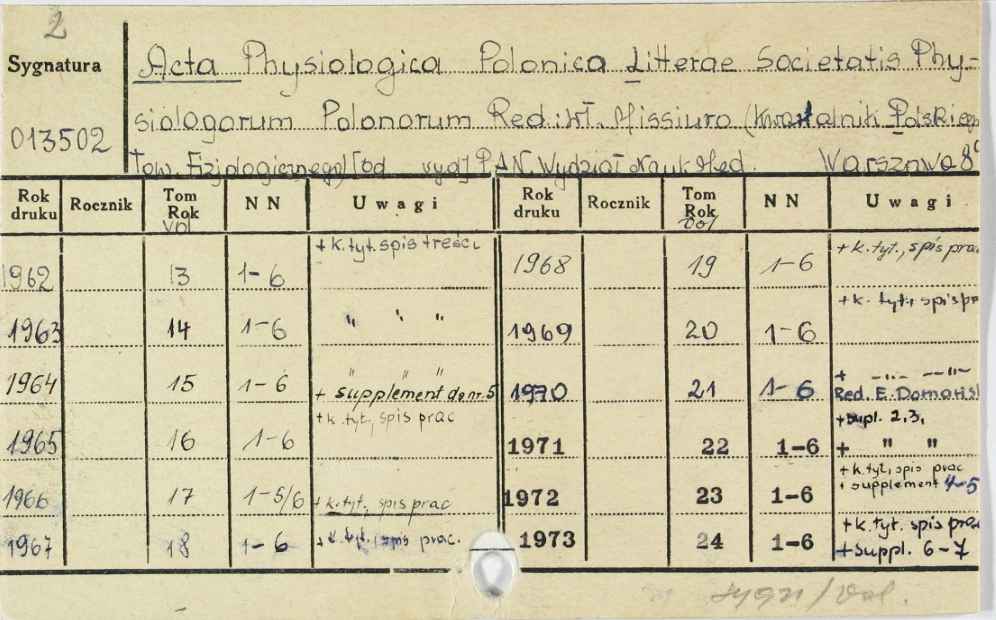 2
Sygnatura
013502
Acta Physiologica Polonica Litterae Societatis Phy-
siologorum Polonorum Red.: Wł. Missiuro (Kwartalnik Polskiego
Tow. Fizjologicznego) [od wyd] PAN. Wydział Nauk Med. Warszawa 8°
Rok druku Rocznik Tom Rok vol N N Uwagi Rok druku Rocznik Tom Rok vol N N Uwagi
1962 13 1-6 + k. tyt. spis treści 1968 19 1-6 + k. tyt., spis prac
1963 14 1-6 " " " 1969 20 1-6 + k. tyt., spis pr
1964 15 1-6 " " " + supplement do nr. 5 1970 21 1-6 + -"- -"- Red. E. Domański
1965 16 1-6 + k. tyt., spis prac 1971 22 1-6 + supl. 2,3, + " "
1966 17 1-5/6 + k. tyt., spis prac 1972 23 1-6 + k. tyt., spis prac + supplement 4-5
1967 18 1-6 + k. tyt., spis prac. 1973 24 1-6 + k. tyt. spis prac + Suppl. 6-7
sygn/Vol.